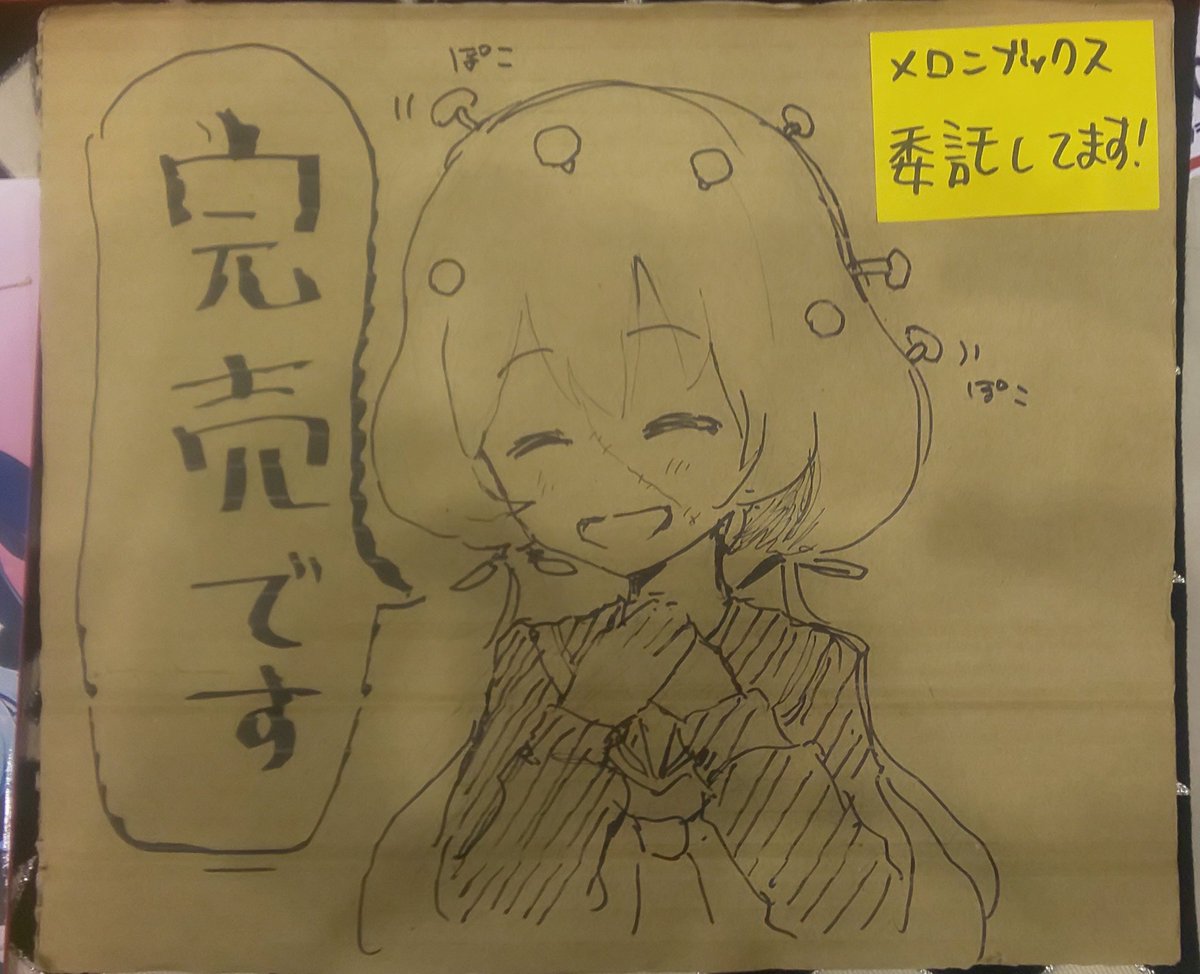 完売です
ぽこ
ぽこ
メロンブックス
委託してます!